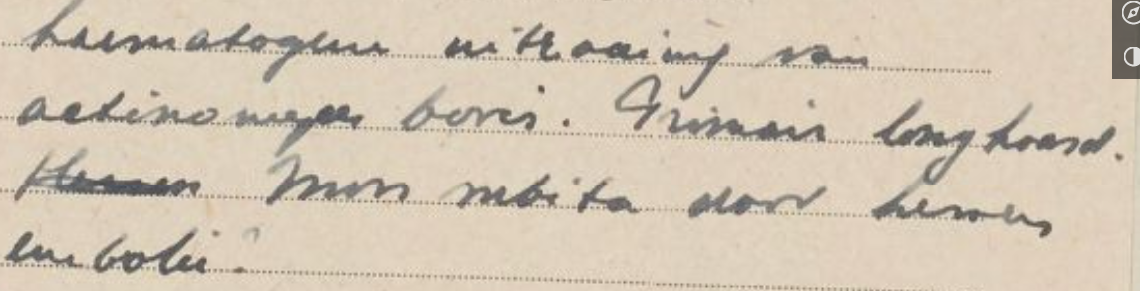 haematogene uitzaaiing van
actinomyces bovis. Primair longhaard.
Hersen Mors subita door hersen
embolie?